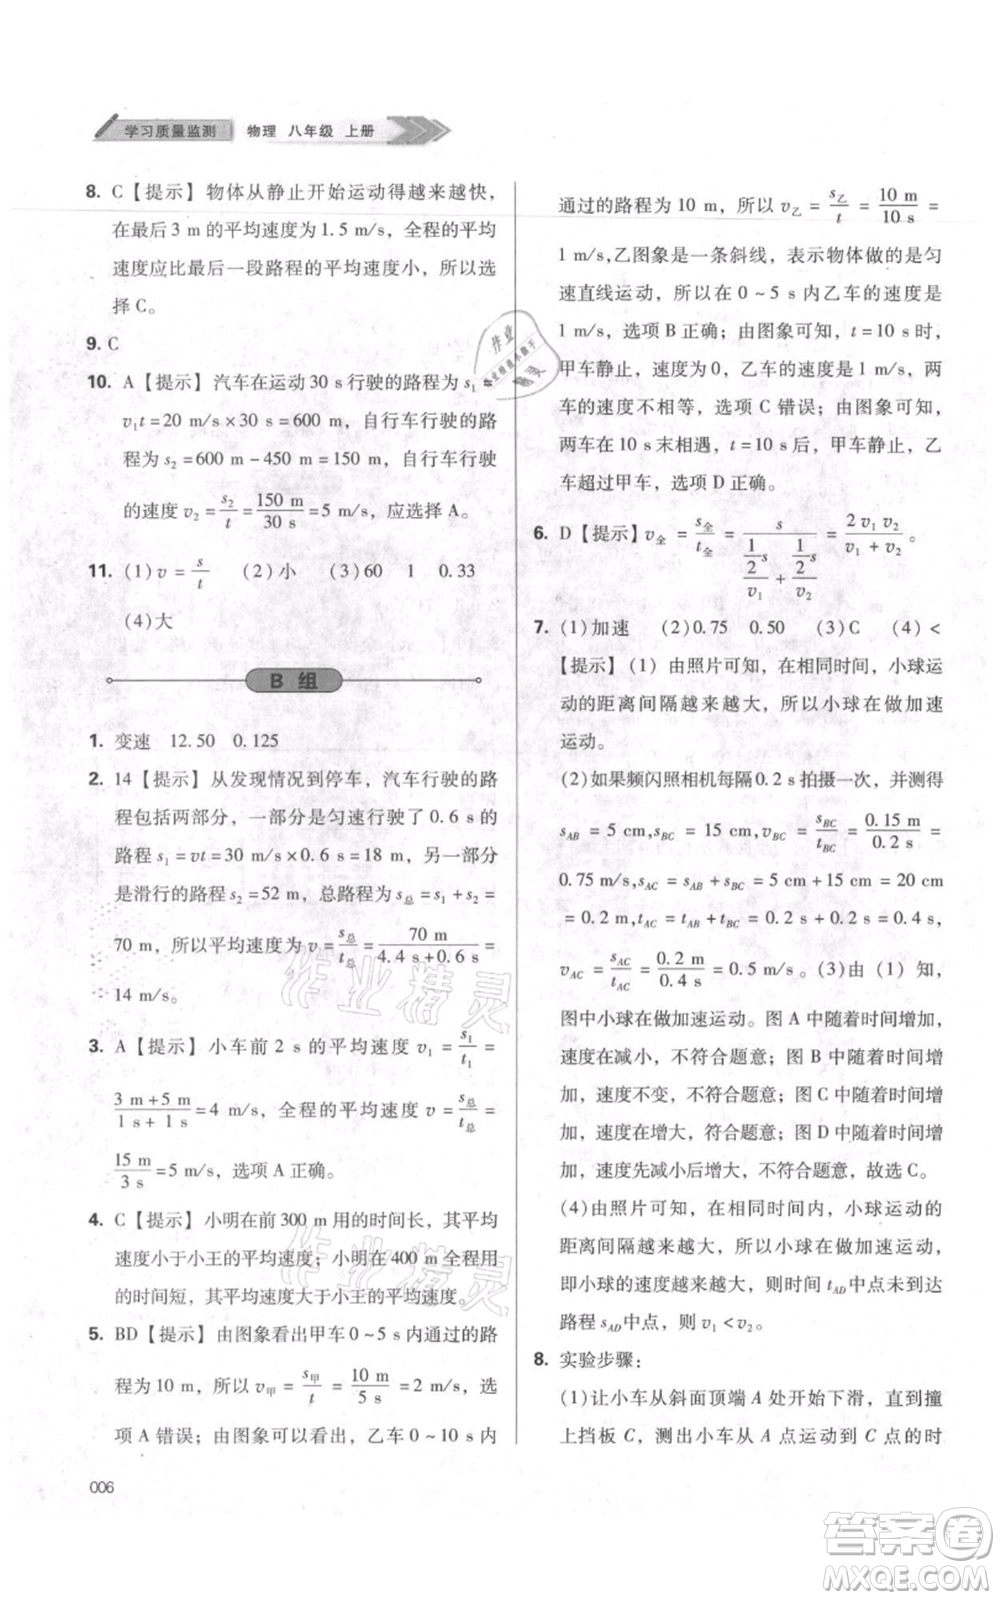 学习质量监测 物理 八年级 上册
8. C【提示】物体从静止开始运动得越来越快，
在最后 3 m 的平均速度为 1.5 m/s，全程的平均
速度应比最后一段路程的平均速度小，所以选
择 C。
9. C
10. A【提示】汽车在运动 30 s 行驶的路程为 s₁ =
v₁t = 20 m/s × 30 s = 600 m，自行车行驶的路
程为 s₂ = 600 m - 450 m = 150 m，自行车行驶
的速度 v₂ = s₂/t = 150 m/30 s = 5 m/s，应选择 A。
11. (1) v = s/t (2)小 (3)60 1 0.33
(4)大
B 组
1. 变速 12.50 0.125
2. 14【提示】从发现情况到停车，汽车行驶的路
程包括两部分，一部分是匀速行驶了 0.6 s 的
路程 s₁ = vt = 30 m/s × 0.6 s = 18 m，另一部分
是滑行的路程 s₂ = 52 m，总路程 s总 = s₁ + s₂ =
70 m，所以平均速度 v = s总/t总 = 70 m/(4.4 s + 0.6 s) =
14 m/s。
3. A【提示】小车前 2 s 的平均速度 v₁ = s₁/t₁ =
(3 m + 5 m)/(1 s + 1 s) = 4 m/s，全程的平均速度 v = s总/t总 =
15 m/3 s = 5 m/s，选项 A 正确。
4. C【提示】小明在前 300 m 用的时间长，其平均
速度小于小王的平均速度；小明在 400 m 全程用
的时间短，其平均速度大于小王的平均速度。
5. BD【提示】由图象看出甲车 0~5 s 内通过的路
程为 10 m，所以 v甲 = s甲/t = 10 m/5 s = 2 m/s，选
项 A 错误；由图象可以看出，乙车 0~10 s 内
006
通过的路程为 10 m，所以 v乙 = s乙/t = 10 m/10 s =
1 m/s，乙图象是一条斜线，表示物体做的是匀
速直线运动，所以在 0~5 s 内乙车的速度是
1 m/s，选项 B 正确；由图象可知，t = 10 s 时，
甲车静止，甲车的速度为 0，乙车的速度为 1 m/s，两
车的速度不相等，选项 C 错误；由图象可知，
两车在 10 s 末相遇，t = 10 s 后，甲车静止，乙
车超过甲车，选项 D 正确。
6. D【提示】v全 = s全/t全 = s/((1/2 s)/v₁ + (1/2 s)/v₂) = 2v₁v₂/(v₁ + v₂)。
7. (1)加速 (2)0.75 0.50 (3)C (4) <
【提示】(1) 由照片可知，在相同时间，小球运
动的距离间隔越来越大，所以小球在做加速
运动。
(2)如果频闪照相机每隔 0.2 s 拍摄一次，并测得
sAB = 5 cm, sBC = 15 cm, vBC = sBC/tBC = 0.15 m/0.2 s =
0.75 m/s, sAC = sAB + sBC = 5 cm + 15 cm = 20 cm
= 0.2 m, tAC = tAB + tBC = 0.2 s + 0.2 s = 0.4 s,
vAC = sAC/tAC = 0.2 m/0.4 s = 0.5 m/s。(3)由（1）知，
图中小球在做加速运动。图 A 中随着时间增加，
速度在减小，不符合题意；图 B 中随着时间增
加，速度不变，不符合题意；图 C 中随着时间增
加，速度增大，符合题意；图 D 中随着时间增
加，速度先减小后增大，不符合题意，故选 C。
(4)由照片可知，在相同时间内，小球运动的
距离间隔越来越大，所以小球在做加速运动，
即小球的速度越来越大，所以时间 tAD 中点未到达
路程 sAD 中点，则 v₁ < v₂。
8. 实验步骤：
(1)让小车从斜面顶端 A 处开始下滑，直到撞
上挡板 C，测出小车从 A 点运动到 C 点的时
作业精灵
作业精灵
答案卷
MXQE.COM